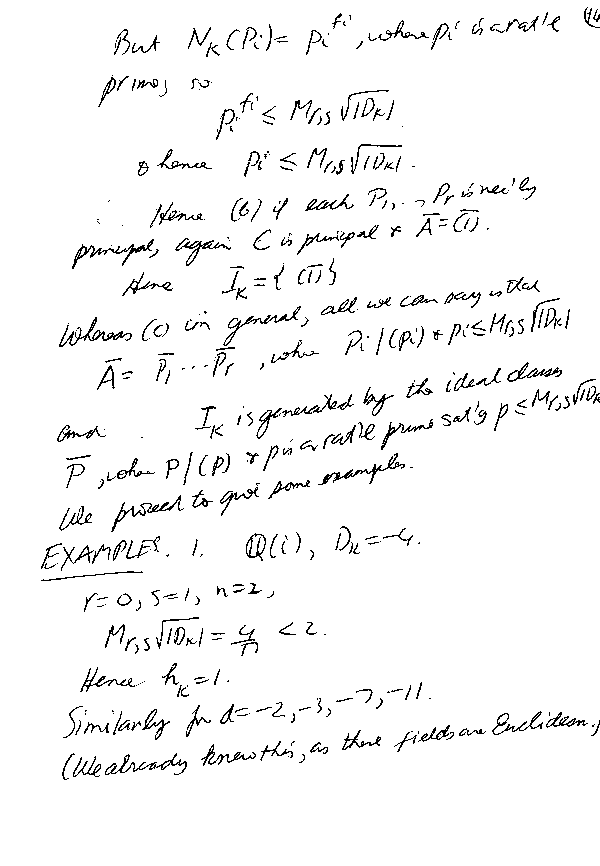 But N_K(P_i) = p_i^{f_i}, where p_i is a rat'l
prime, so
p_i^{f_i} ≤ M_{r,s} √|D_K|
& hence p_i ≤ M_{r,s} √|D_K|.
Hence (b) if each P_1, ..., P_r is nec'ly
principal, again C is principal & A̅ = (1)̅.
Hence I_K = { (1)̅ }
Whereas (c) in general, all we can say is that
A̅ = P̅_1 ... P̅_r, where P_i | (p_i) & p_i ≤ M_{r,s} √|D_K|
and I_K is generated by the ideal classes
P̅, where P | (p) & p is a rat'l prime sat'g p ≤ M_{r,s} √|D_K
We proceed to give some examples.
EXAMPLES. 1. ℚ(i), D_K = -4.
r = 0, s = 1, n = 2,
M_{r,s} √|D_K| = 4/π < 2.
Hence h_K = 1.
Similarly for d = -2, -3, -7, -11.
(We already knew this, as these fields are Euclidean.)